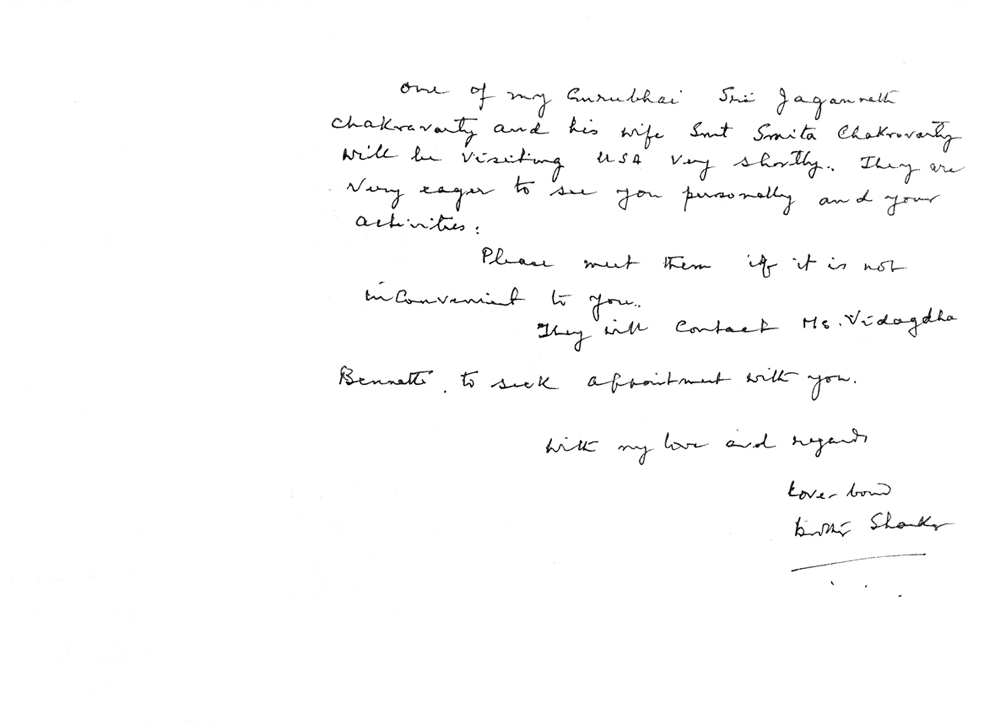 One of my Gurubhai Sri Jagannath
Chakravarty and his wife Smt Smita Chakravarty
will be visiting USA very shortly. They are
very eager to see you personally and your
activities.
Please meet them if it is not
inconvenient to you.
They will contact Ms. Vidagdha
Bennett to seek appointment with you.
With my love and regards
Love-bound
brother Shanker